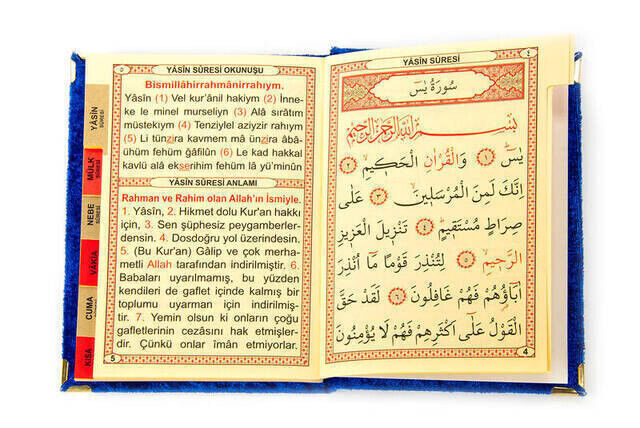 YÂSİN SÛRESİ OKUNUŞU
Bismillâhirrahmânirrahıym.
Yâsîn (1) Vel kur'ânil hakiym (2) İnne-
ke le minel murseliyn (3) Alâ sırâtım
müstekıym (4) Tenziylel aziyzir rahıym
(5) Li tünzira kavmem mâ ünzira âbâ-
ühüm fehüm ğâfilûn (6) Le kad hakkal
kavlü alâ ekserihim fehüm lâ yü'minûn
YÂSÎN SÛRESİ ANLAMI
Rahman ve Rahim olan Allah'ın İsmiyle.
1. Yâsîn, 2. Hikmet dolu Kur'an hakkı
için, 3. Sen şüphesiz peygamberler-
densin. 4. Dosdoğru yol üzerindesin.
5. (Bu Kur'an) Gâlip ve çok merha-
metli Allah tarafından indirilmiştir. 6.
Babaları uyarılmamış, bu yüzden
kendileri de gaflet içinde kalmış bir
toplumu uyarman için indirilmiş-
tir. 7. Yemin olsun ki onların çoğu
gafletlerinin cezasını hak etmişler-
dir. Çünkü onlar îmân etmiyorlar.
5
YÂSİN SÛRESİ
MÜLK
NEBE SÛRESİ
VAKIA
CUMA
KISA
YÂSİN SÛRESİ
٤
سُورَةُ يٰسٓ
بِسْمِ اللّٰهِ الرَّحْمٰنِ الرَّحِيمِ
يٰسٓ ﴿١﴾ وَالْقُرْاٰنِ الْحَكِيمِ ﴿٢﴾
اِنَّكَ لَمِنَ الْمُرْسَلِينَ ﴿٣﴾ عَلٰى
صِرَاطٍ مُسْتَقِيمٍ ﴿٤﴾ تَنْزِيلَ الْعَزِيزِ
الرَّحِيمِ ﴿٥﴾ لِتُنْذِرَ قَوْمًا مَٓا اُنْذِرَ
اٰبَٓاؤُ۬هُمْ فَهُمْ غَافِلُونَ ﴿٦﴾ لَقَدْ حَقَّ
الْقَوْلُ عَلٰٓى اَكْثَرِهِمْ فَهُمْ لَا يُؤْمِنُونَ
4